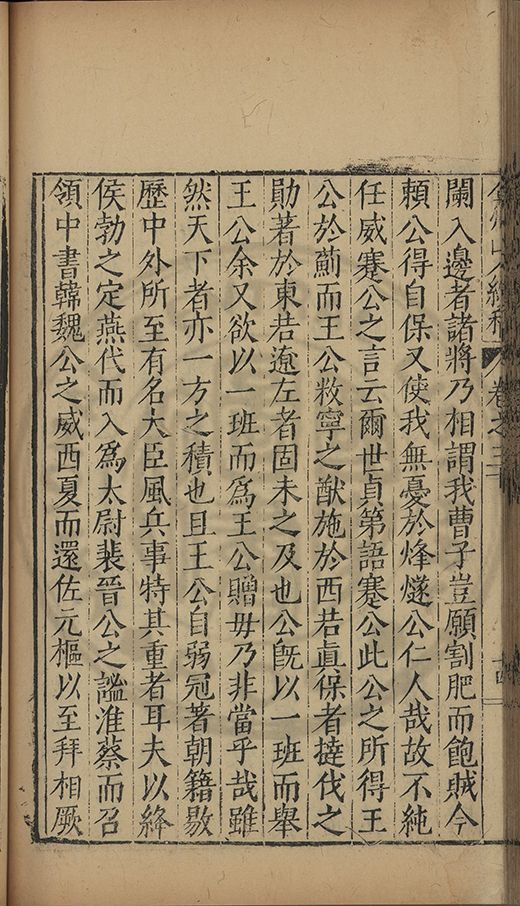 卷之三十
十四
闌入邊者諸將乃相謂我曹子豈願割肥而飽賊今
賴公得自保又使我無憂於烽燧公仁人哉故不純
任威蹇公之言云爾世貞第語蹇公此公之所得王
公於薊而王公敉寧之猷施於西若眞保者撻伐之
勛著於東若遼左者固未之及也公旣以一班而舉
王公余又欲以一班而爲王公贈毋乃非當乎哉雖
然天下者亦一方之積也且王公自弱冠著朝籍敭
歷中外所至有名大臣風兵事特其重者耳夫以絳
侯勃之定燕代而入爲太尉裴晉公之謐淮蔡而召
領中書韓魏公之威西夏而還佐元樞以至拜相厥